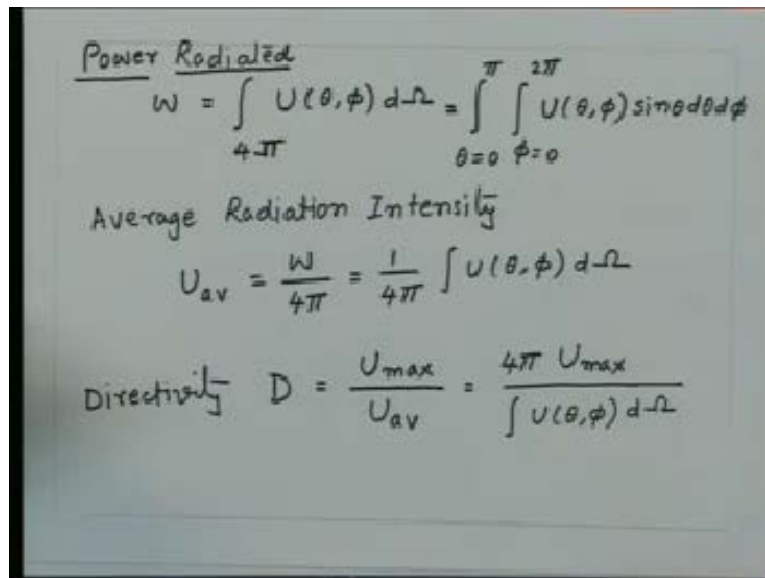 Power Radiated
W = ∫_{4π} U(θ,φ) dΩ = ∫_{θ=0}^{π} ∫_{φ=0}^{2π} U(θ,φ) sinθdθdφ
Average Radiation Intensity
U_{av} = W/4π = 1/4π ∫ U(θ,φ) dΩ
Directivity D = U_{max}/U_{av} = 4π U_{max}/∫ U(θ,φ) dΩ